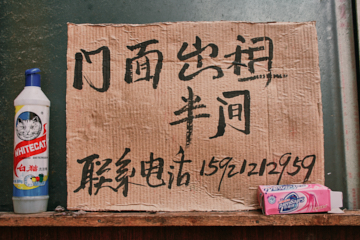 门面出租
半间
联系电话 15921212959
WHITECAT
白猫